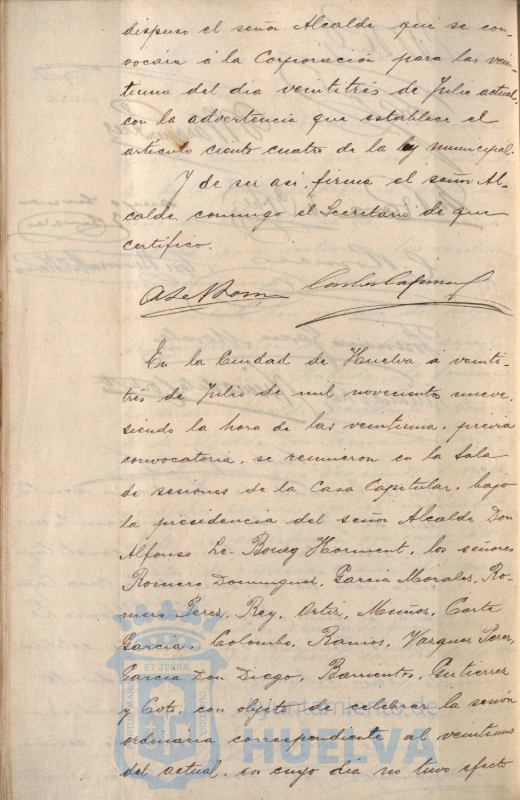 dispuso el señor Alcalde que se con-
vocara á la Corporación para las vein-
tiuna del dia veintitrés de Julio actual,
con la advertencia que establece el
artículo ciento cuatro de la ley municipal.
Y de ser así, firma el señor Al-
calde, conmigo el Secretario de que
certifico.
En la Ciudad de Huelva á veinti-
trés de Julio de mil novecientos nueve,
siendo la hora de las veintiuna, previa
convocatoria, se reunieron en la Sala
de sesiones de la Casa Capitular, bajo
la presidencia del señor Alcalde Don
Alfonso Le-Bourg Horment, los señores
Romero Dominguez, Garcia Morales, Ro-
mero Perez, Rey, Ortiz, Muñoz, Corte
Garcia, Colombo, Ramos, Vazquez Perez,
Garcia Don Diego, Barrientos, Gutierrez
y Coto, con objeto de celebrar la sesión
ordinaria correspondiente al veintiuno
del actual, en cuyo dia no tuvo efecto
ET TERRÆ
Ayuntamiento de
HUELVA